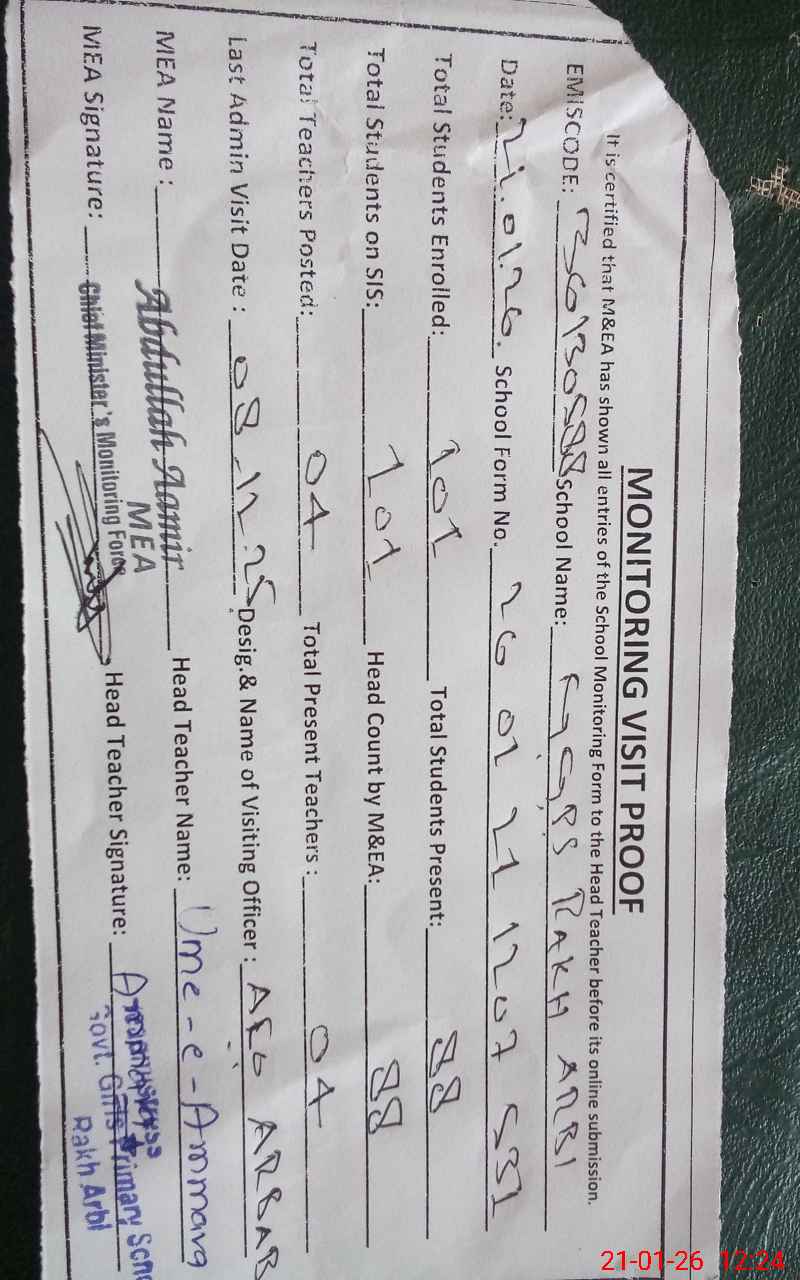 MONITORING VISIT PROOF
It is certified that M&EA has shown all entries of the School Monitoring Form to the Head Teacher before its online submission.
EMISCODE: School Name: RAKH ARBI
Date: 21.01.26. School Form No. 26 01 21 1207 531
Total Students Enrolled: 101 Total Students Present: 88
Total Students on SIS: 101 Head Count by M&EA: 88
Total Teachers Posted: 04 Total Present Teachers: 04
Last Admin Visit Date: 08.12.25 Desig.& Name of Visiting Officer: AEO ARBAB
MEA Name: Abdullah Aamir Head Teacher Name: Ume-e-Ammara
MEA
MEA Signature: Chief Minister's Monitoring Force Head Teacher Signature:
Govt. Girls Primary
Rakh Arbi
21-01-26 12:24